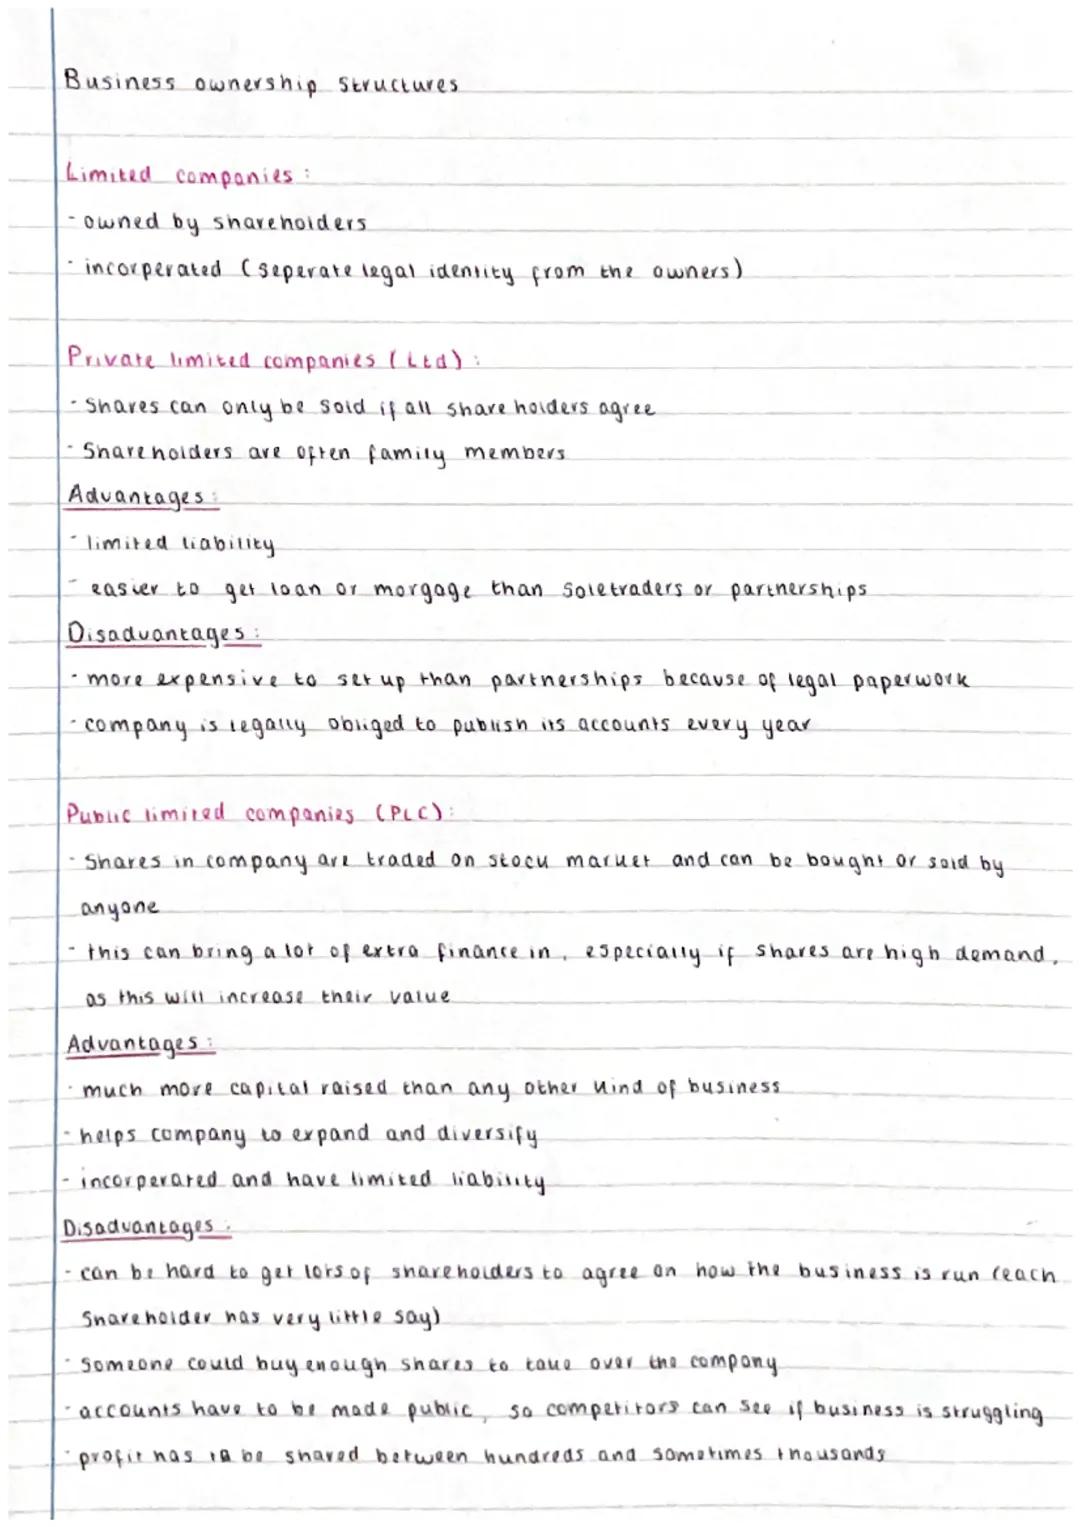 Business ownership structures
Limited companies :
- owned by shareholders
- incorperated (seperate legal identity from the owners)
Private limited companies (Ltd) :
- Shares can only be sold if all share holders agree
- Share holders are often family members
Advantages :
- limited liability
- easier to get loan or morgage than soletraders or partnerships
Disadvantages :
- more expensive to set up than partnerships because of legal paperwork
- company is legally obliged to publish its accounts every year
Public limited companies (PLC) :
- Shares in company are traded on stock market and can be bought or sold by
anyone
- this can bring a lot of extra finance in, especially if shares are high demand,
as this will increase their value
Advantages :
- much more capital raised than any other kind of business
- helps company to expand and diversify
- incorperated and have limited liability
Disadvantages :
- can be hard to get lots of shareholders to agree on how the business is run (each
Shareholder has very little say)
- Someone could buy enough shares to take over the company
- accounts have to be made public, so competitors can see if business is struggling
- profit has to be shared between hundreds and sometimes thousands